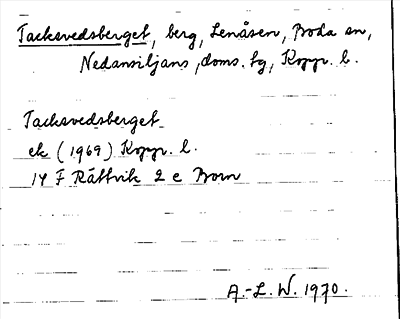 Tacksvedsberget, berg, Lenåsen, Boda sn,
Nedansiljans, doms. tg, Kopp. l.
Tacksvedsberget
ek (1969) Kopp. l.
14 F Rättvik 2 c Born
A.-L. W. 1970.